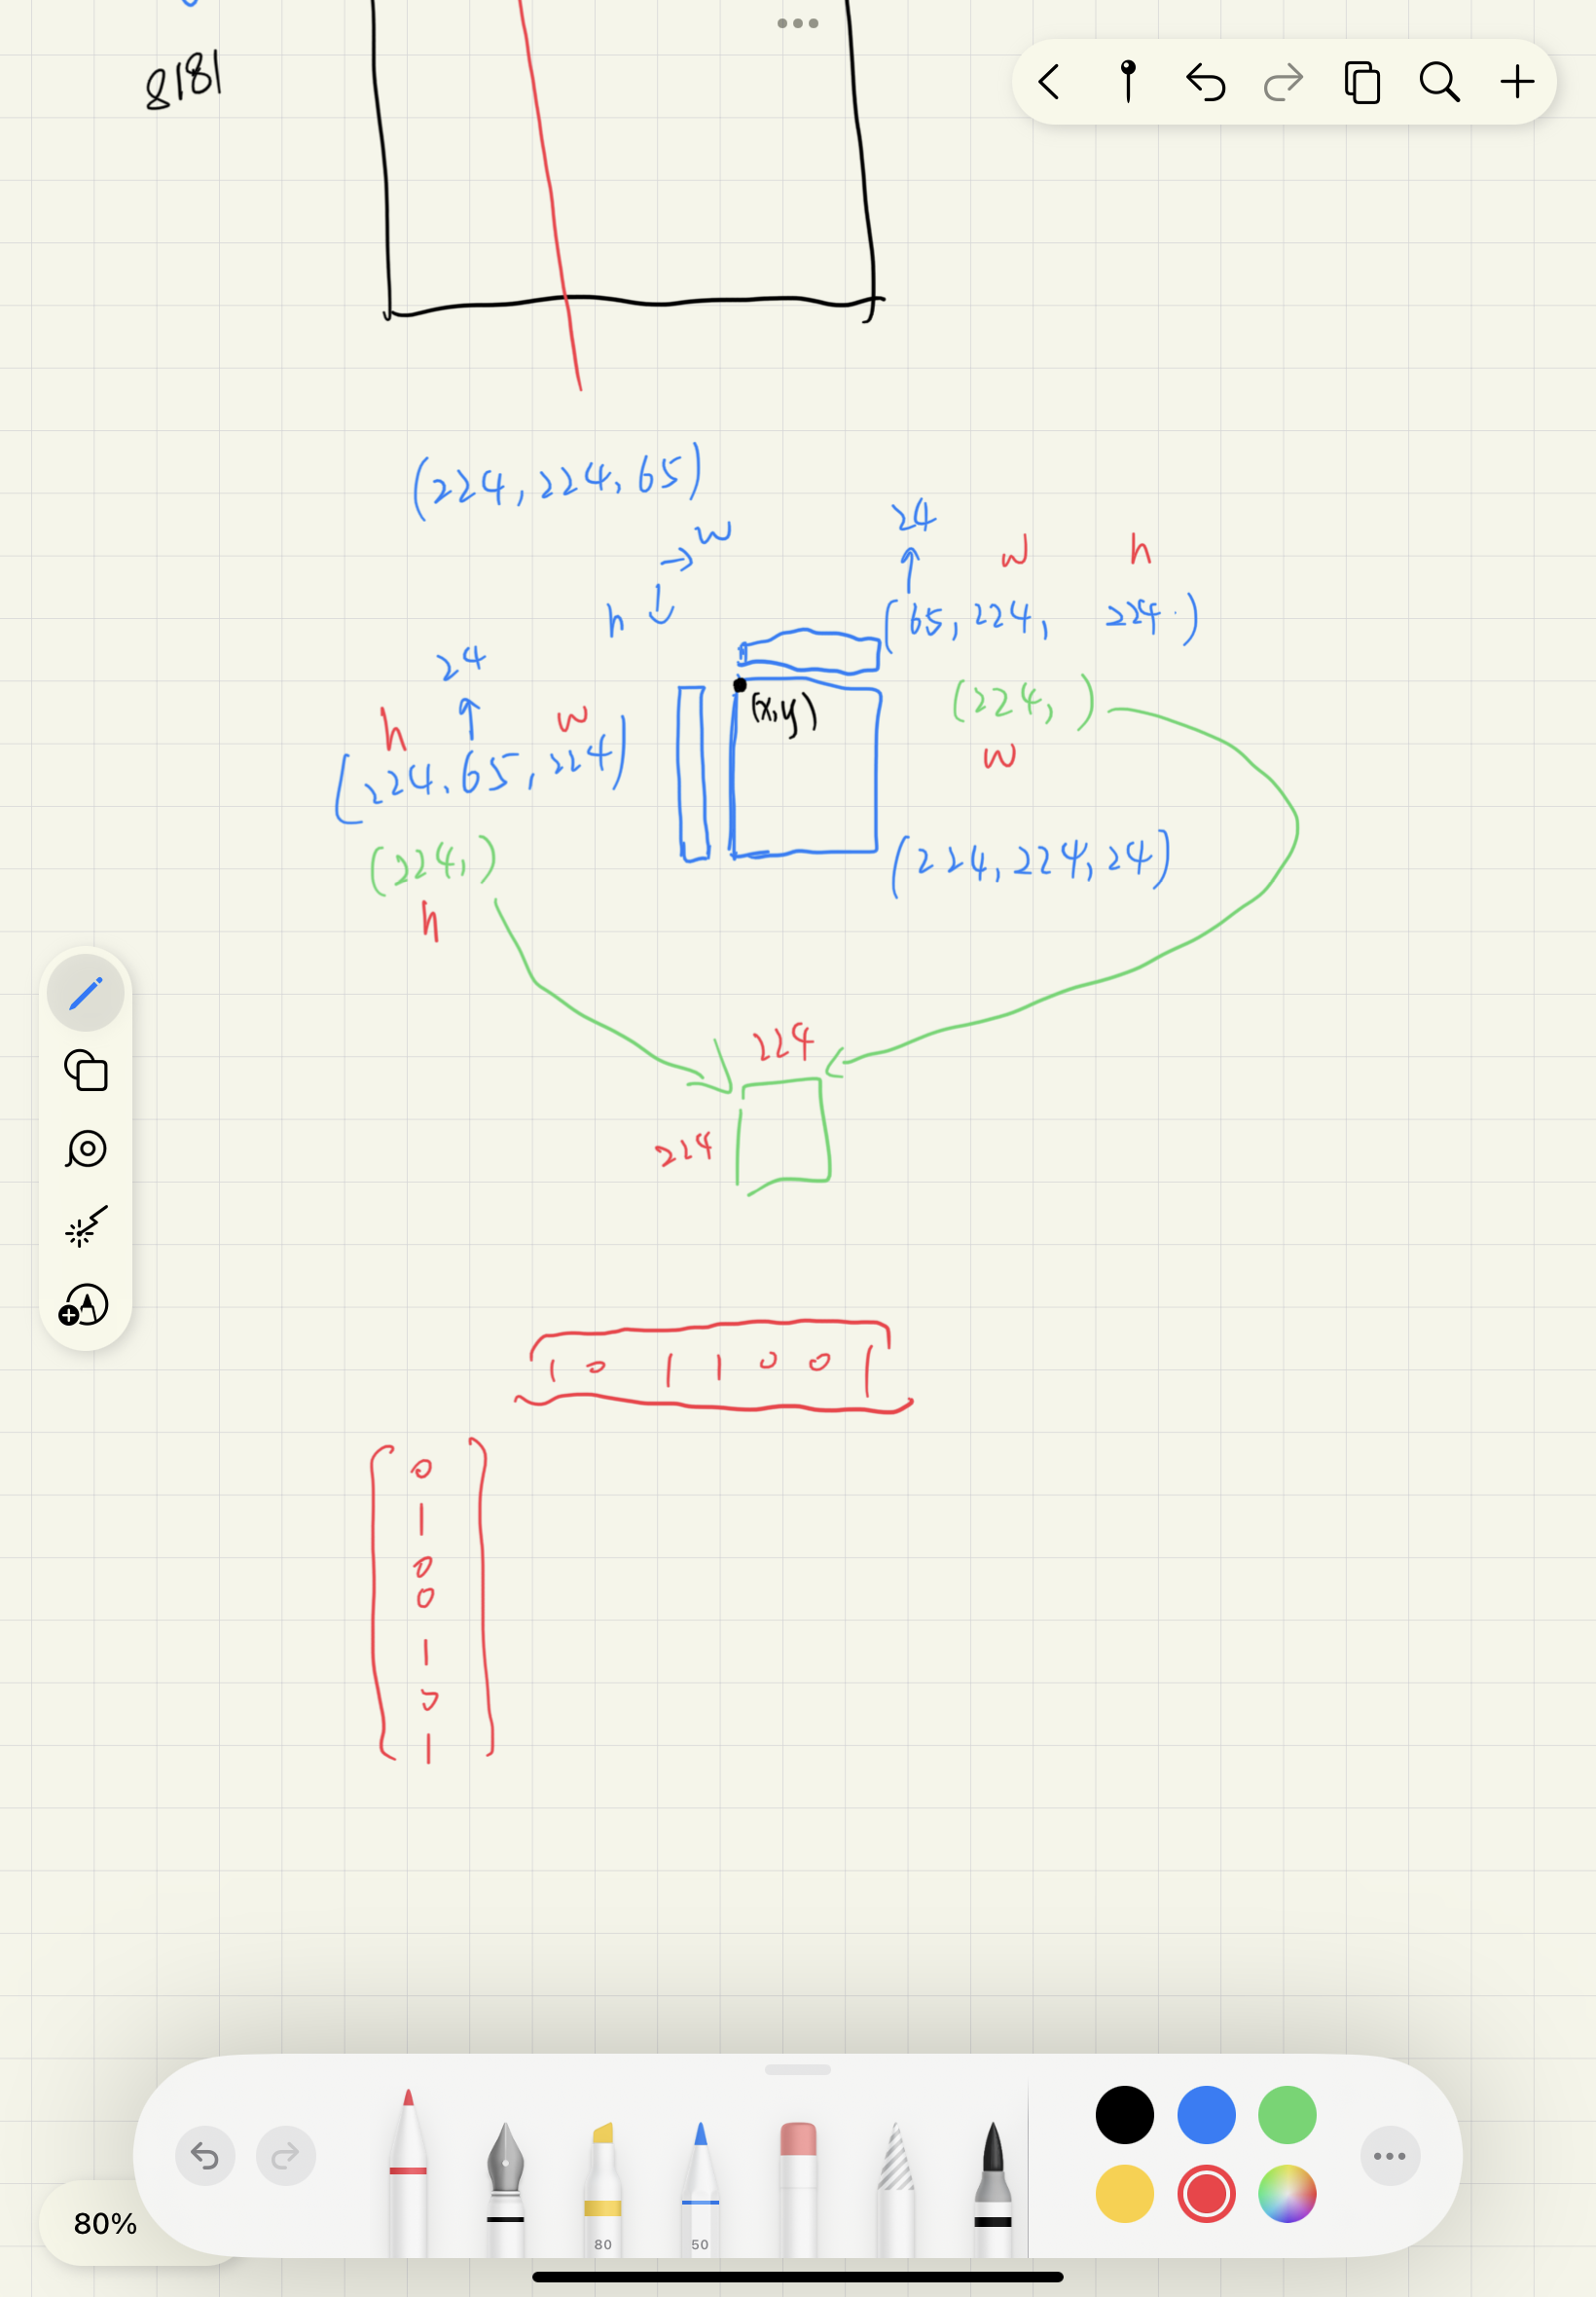 8181
(224, 224, 65)
→ w
h ↓
24
↑
w h
(65, 224, 224)
24
↑
h w
(224, 65, 224)
(x,y)
(224, )
w
(224, )
h
(224, 224, 24)
224
224
1 0 1 1 0 0 1
0
1
0
0
1
0
1
80
50
80%